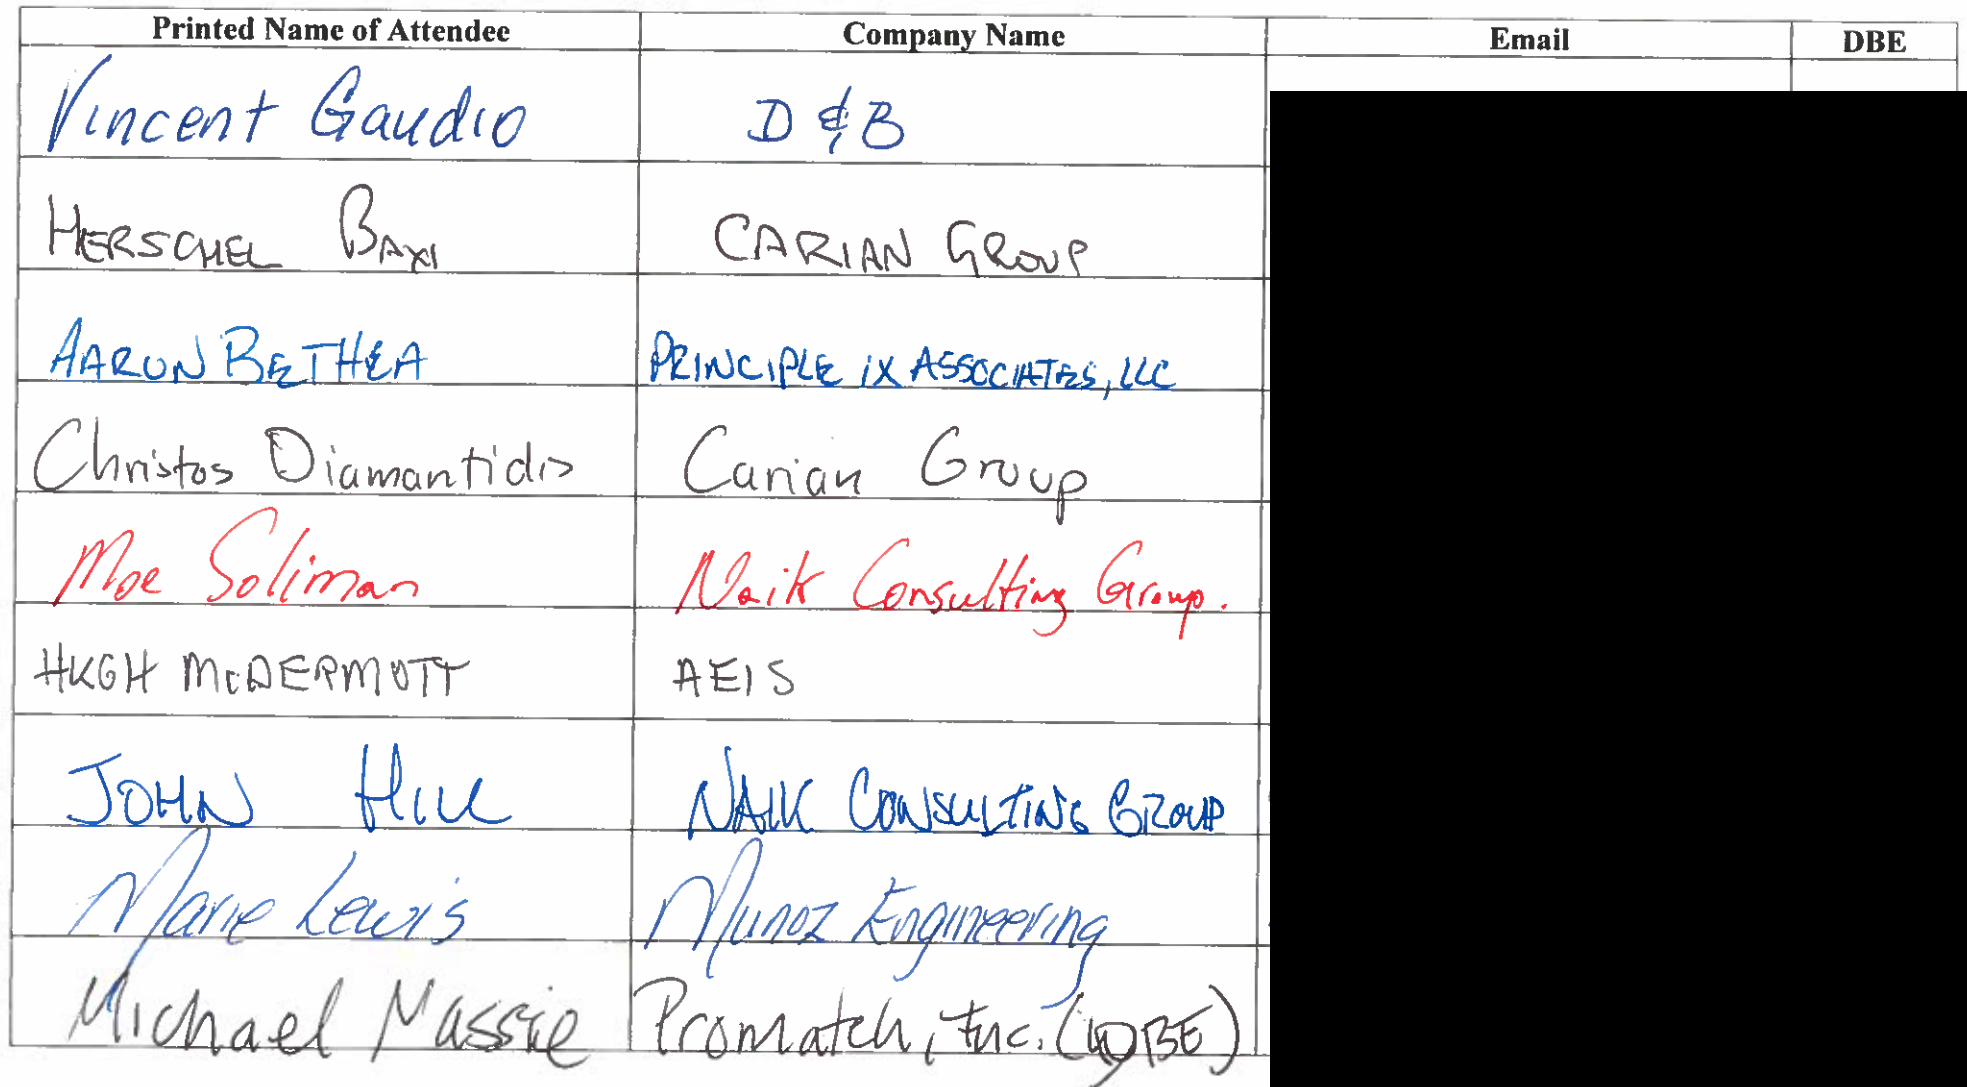 Printed Name of Attendee Company Name Email DBE
Vincent Gaudio D & B
HERSCHEL BAXI CARIAN GROUP
AARON BETHEA PRINCIPLE iX ASSOCIATES, LLC
Christos Diamantidis Carian Group
Moe Soliman Naik Consulting Group.
HUGH McDERMOTT AEIS
JOHN HILL NAIK CONSULTING GROUP
Marie Lewis Munoz Engineering
Michael Massie Promatch, Inc. (DBE)